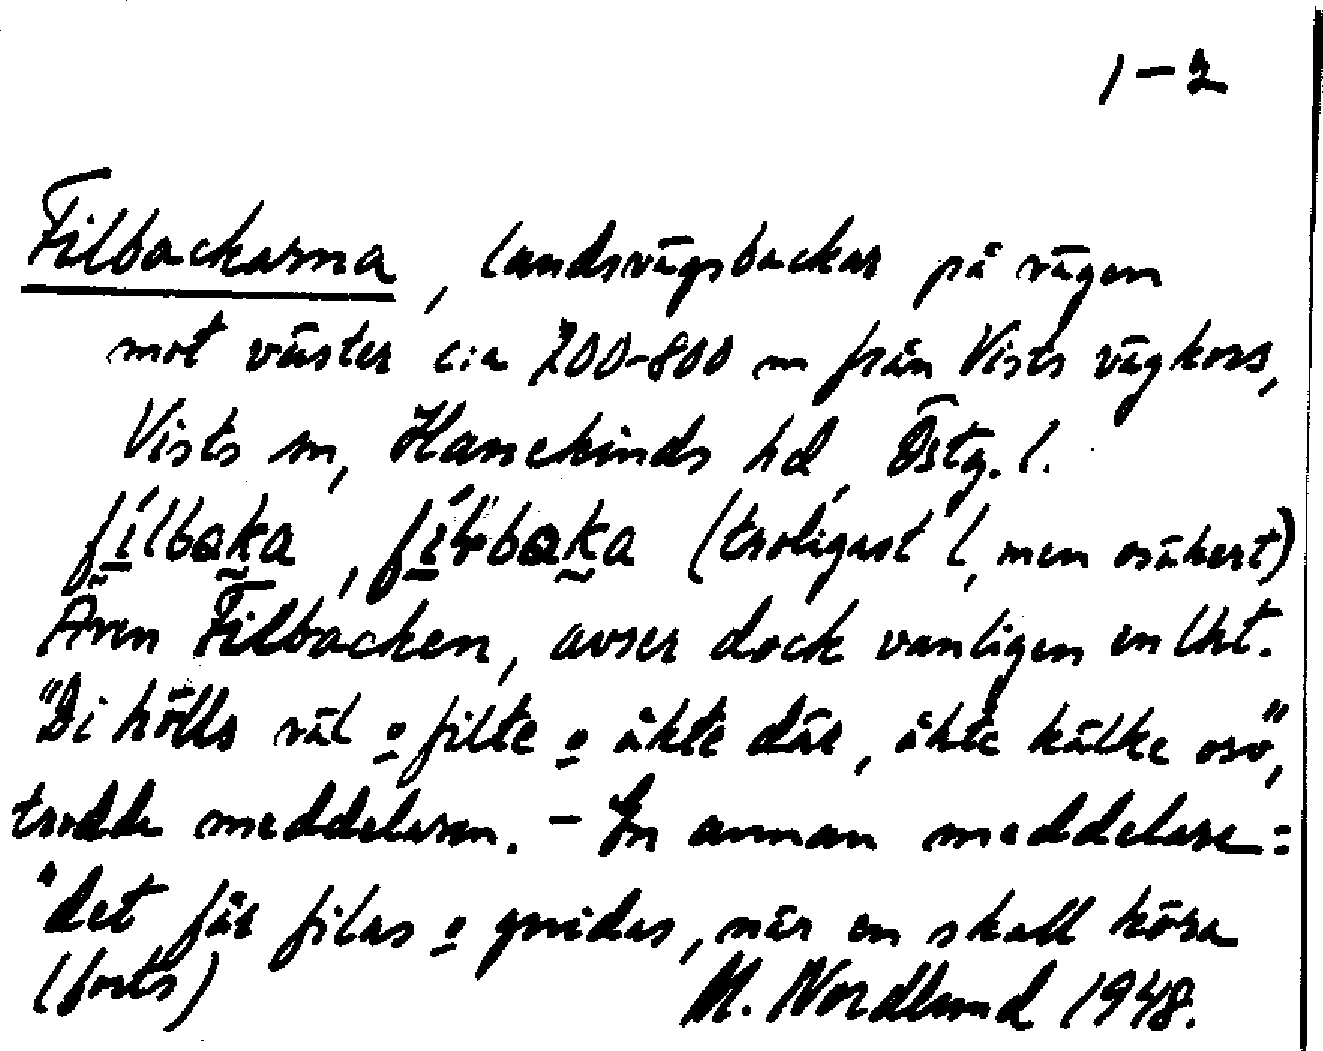 1-2
Filbackarna, landsvägsbackar på vägen
mot väster c:a 700-800 m från Vists vägkors,
Vists sn, Hanekinds hd, Östg. l.
(troligast l, men osäkert)
Även Filbacken, avser dock vanligen enlkt.
"Di hölls väl o filte o åkte där, åkte kälke osv",
trodde meddelaren. – En annan meddelare:
"det får filas o gnidas, när en skall köra
(forts) M. Nordlund 1948.